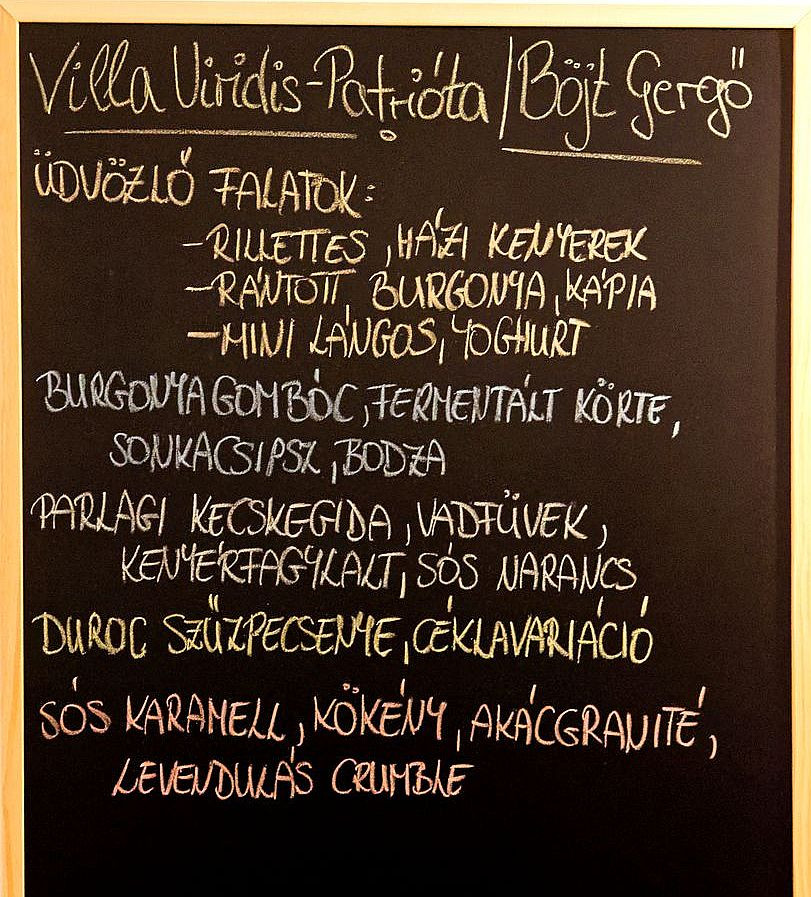 Villa Viridis-Patrióta / Böjt Gergő
ÜDVÖZLŐ FALATOK:
- RILLETTES, HÁZI KENYEREK
- RÁNTOTT, BURGONYA, KÁPIA
- MINI LÁNGOS, YOGHURT
BURGONYAGOMBÓC, FERMENTÁLT KÖRTE,
SONKACSIPSZ, BODZA
PARLAGI KECSKEGIDA, VADFÜVEK,
KENYÉRFAGYLALT, SÓS NARANCS
DUROC SZŰZPECSENYE, CÉKLAVARIÁCIÓ
SÓS KARAMELL, KÖKÉNY, AKÁCGRANITÉ,
LEVENDULÁS CRUMBLE